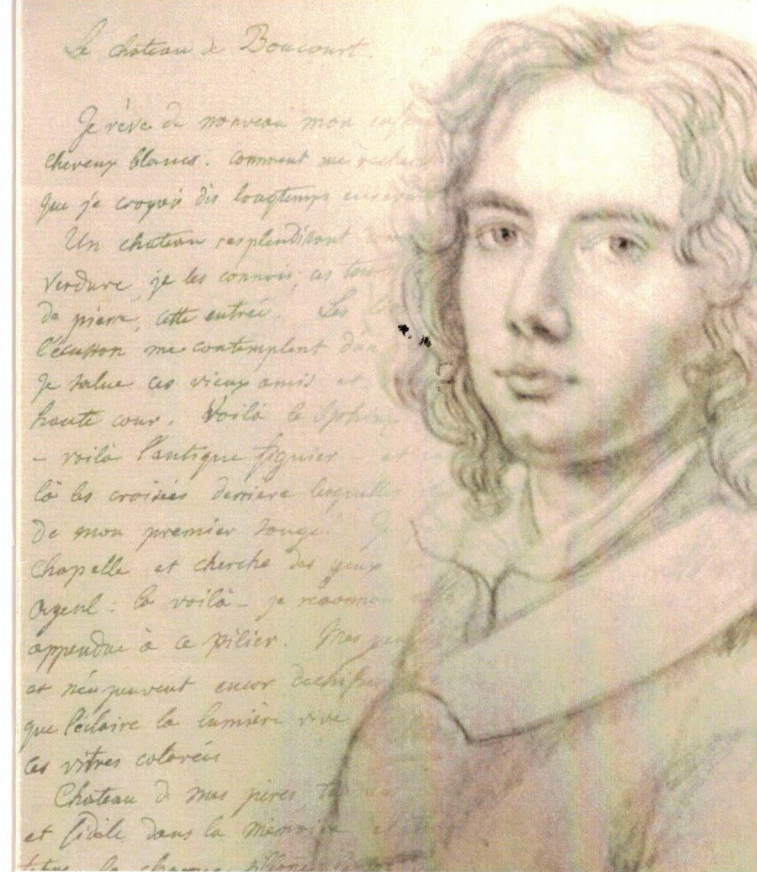 Le chateau de Boncourt.
Je rêve de nouveau mon
cheveux blancs. comment me
que je croyois dès longtemps
Un chateau resplendissant
verdure, je les connois, ces
de pierre, cette entrée. Les
l'écusson me contemplent d'un
je salue ces vieux amis et
haute cour. Voilà le Sphinx
– voilà l'antique figuier et
là les croisées derriere lesquelles
de mon premier songe.
Chapelle et cherche des yeux
ayeul : le voilà – je reconnois
appendue à ce pilier. Mes
et peuvent encor
que l'éclaire la lumière vive
ces vitres colorées
Chateau de mes pères, tu
et fidèle dans la mémoire et
la charrue